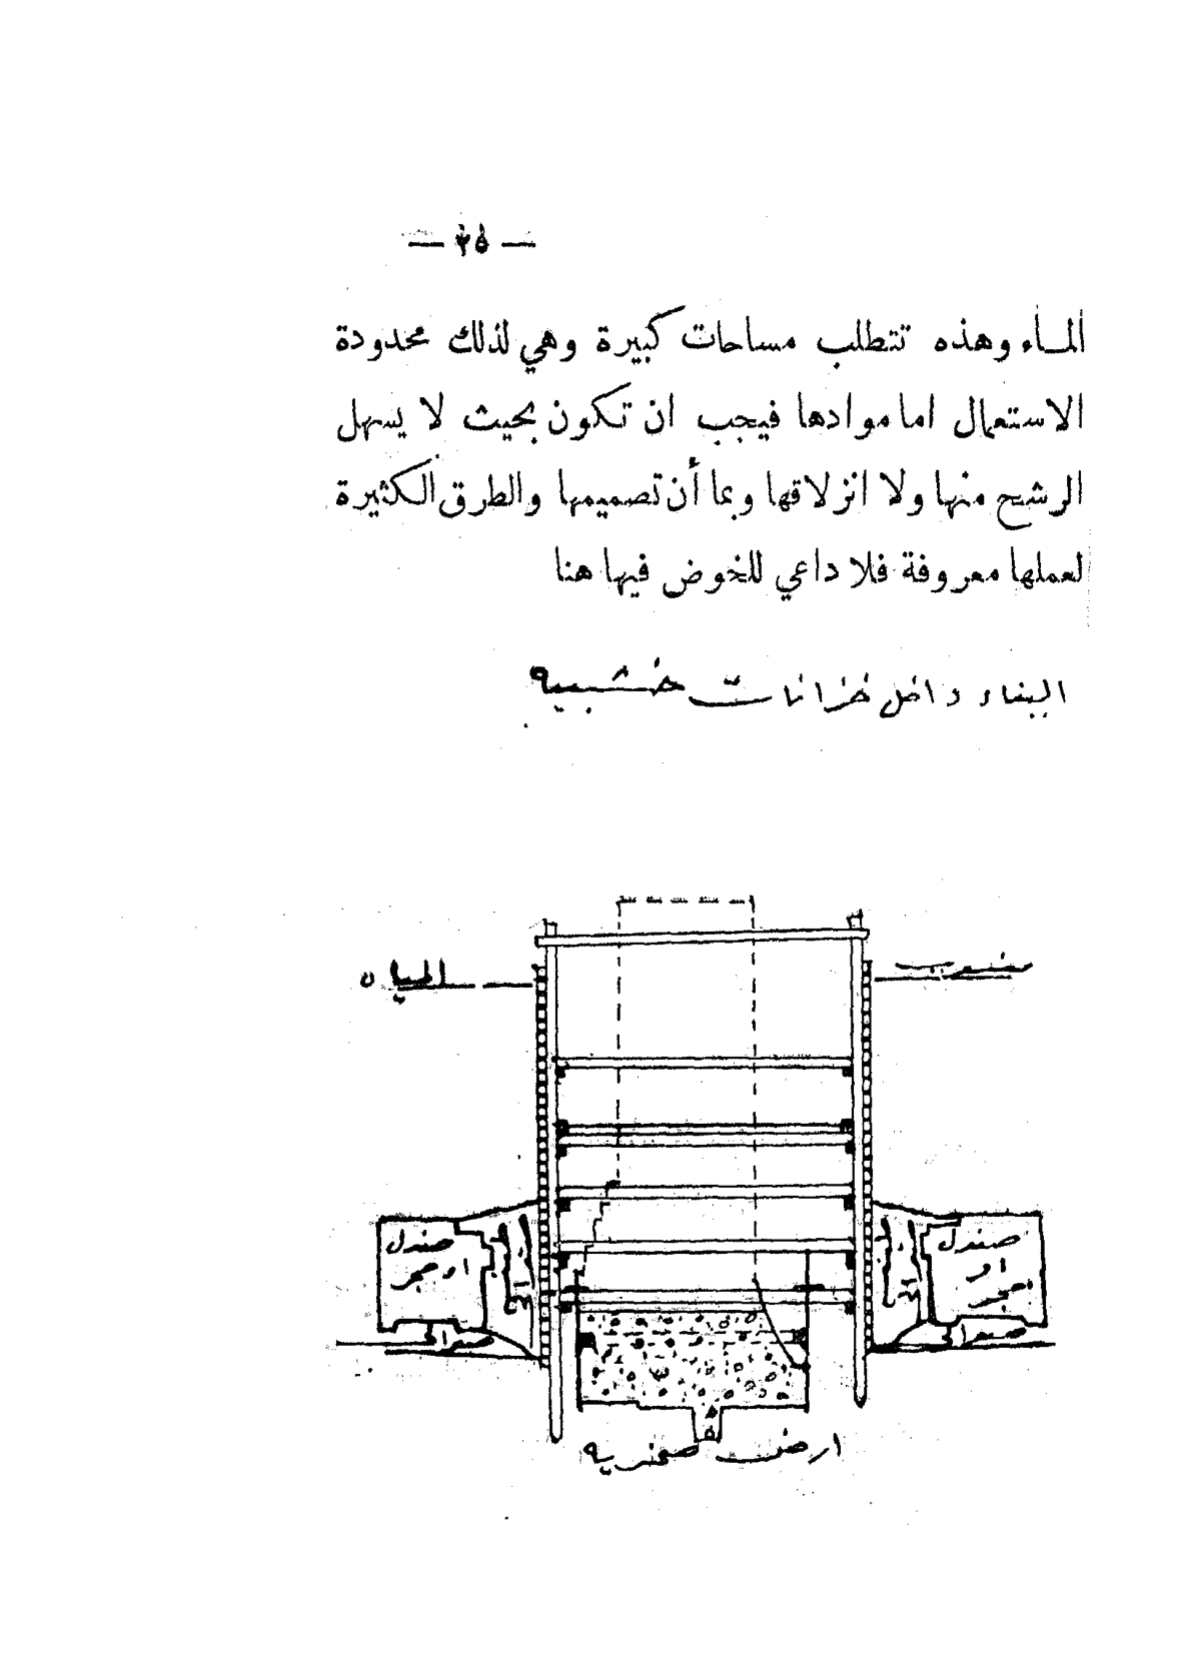 — ٣٥ —
الماء وهذه تتطلب مساحات كبيرة وهي لذلك محدودة
الاستعمال اما موادها فيجب ان تكون بحيث لا يسهل
الرشح منها ولا انزلاقها وبما أن تصميمها والطرق الكثيرة
لعملها معروفة فلا داعي للخوض فيها هنا
البناء داخل خزانات خشبيه
منسوب
المياه
صندل
او حجر
صندل
او
حجر
ارض صخريه